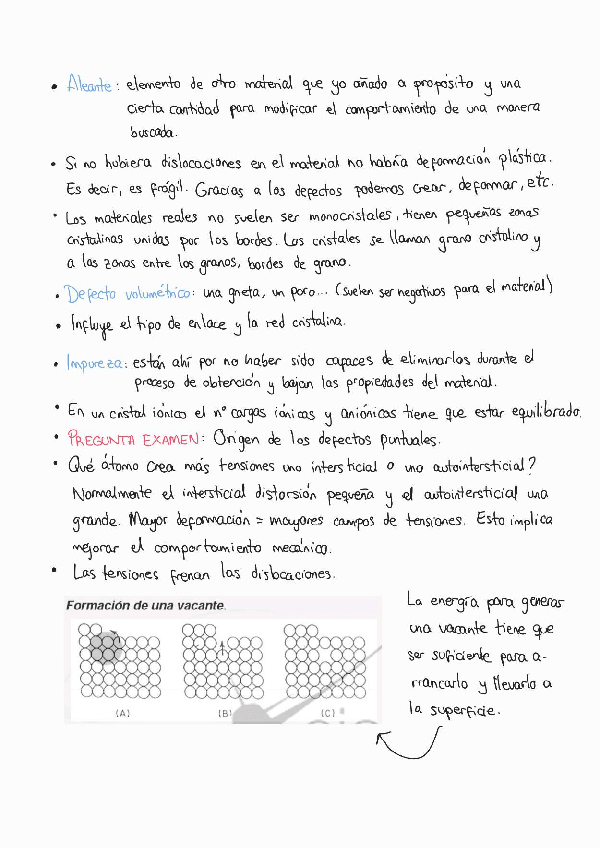 • Aleante: elemento de otro material que yo añado a propósito y una
cierta cantidad para modificar el comportamiento de una manera
buscada.
• Si no hubiera dislocaciones en el material no habría deformación plástica.
Es decir, es frágil. Gracias a los defectos podemos crear, deformar, etc.
• Los materiales reales no suelen ser monocristales, tienen pequeñas zonas
cristalinas unidas por los bordes. Los cristales se llaman grano cristalino y
a las zonas entre los granos, bordes de grano.
• Defecto volumétrico: una grieta, un poro... (suelen ser negativos para el material)
• Influye el tipo de enlace y la red cristalina.
• Impureza: están ahí por no haber sido capaces de eliminarlos durante el
proceso de obtención y bajan las propiedades del material.
• En un cristal iónico el nº cargas iónicas y aniónicas tiene que estar equilibrado.
• PREGUNTA EXAMEN: Origen de los defectos puntuales.
• Qué átomo crea más tensiones uno intersticial o uno autointersticial?
Normalmente el intersticial distorsión pequeña y el autointersticial una
grande. Mayor deformación = mayores campos de tensiones. Esto implica
mejorar el comportamiento mecánico.
• Las tensiones frenan las dislocaciones.
Formación de una vacante.
(A) (B) (C)
La energía para generar
una vacante tiene que
ser suficiente para a-
rrancarlo y llevarlo a
la superficie.